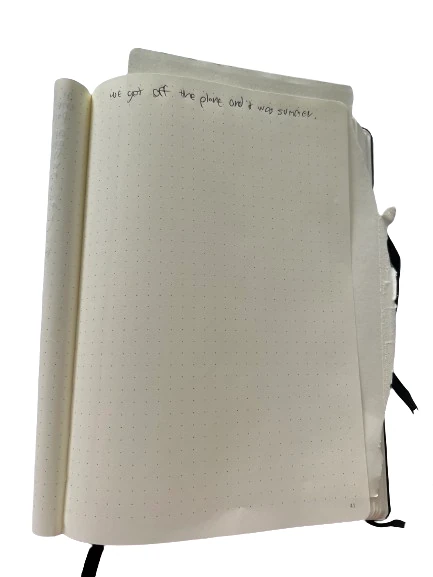 we got off the plane and it was summer.